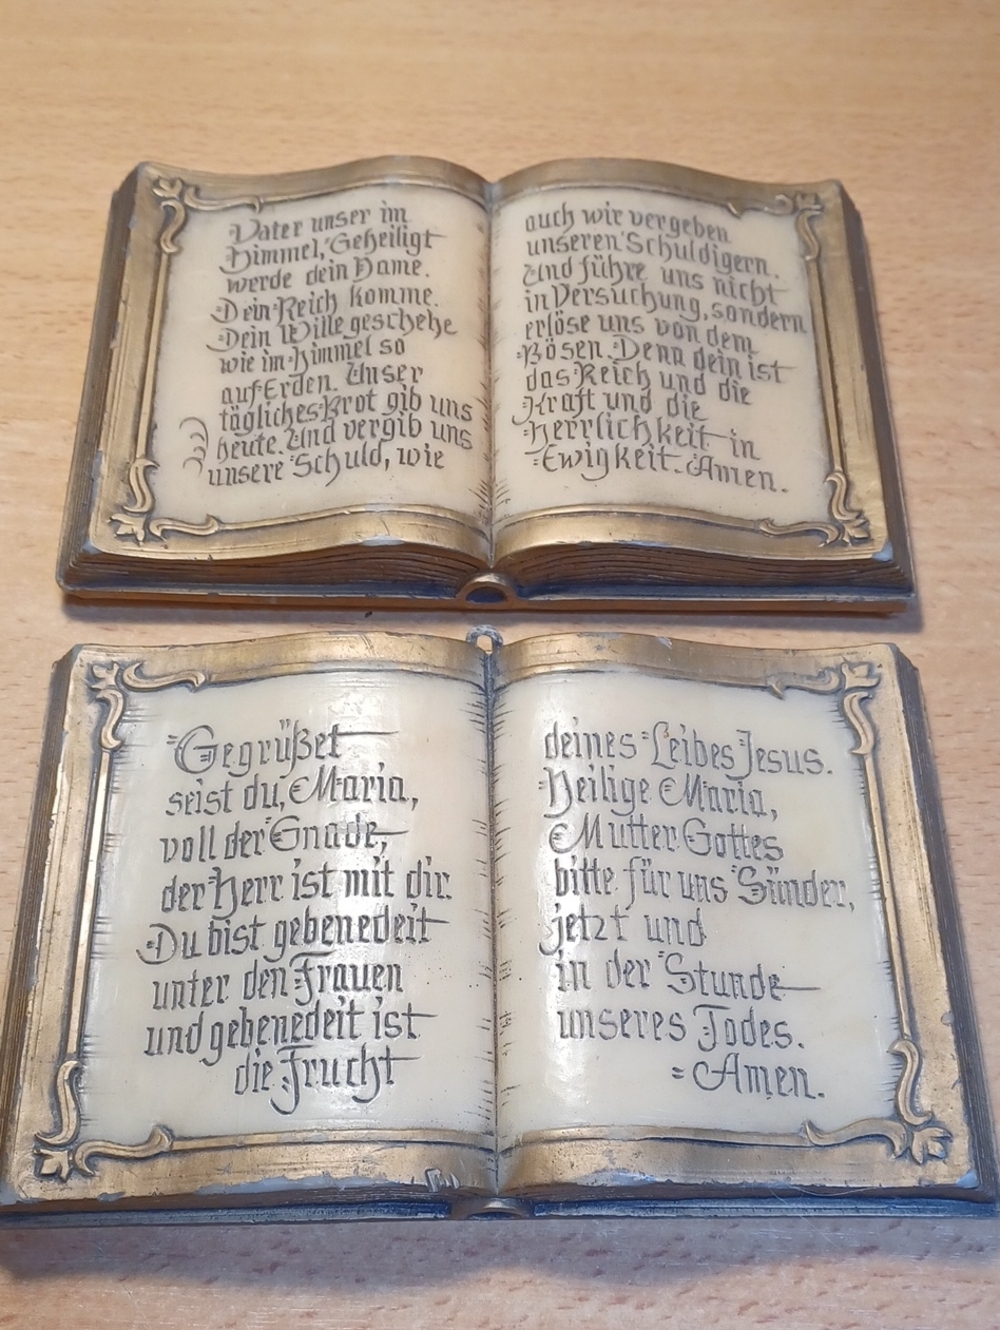 Vater unser im
Himmel, Geheiligt
werde dein Name.
Dein Reich komme.
Dein Wille geschehe
wie im Himmel so
auf Erden. Unser
tägliches Brot gib uns
heute. Und vergib uns
unsere Schuld, wie
auch wir vergeben
unseren Schuldigern.
Und führe uns nicht
in Versuchung, sondern
erlöse uns von dem
Bösen. Denn dein ist
das Reich und die
Kraft und die
Herrlichkeit in
Ewigkeit. Amen.
Gegrüßet
seist du, Maria,
voll der Gnade,
der Herr ist mit dir.
Du bist gebenedeit
unter den Frauen
und gebenedeit ist
die Frucht
deines Leibes Jesus.
Heilige Maria,
Mutter Gottes
bitte für uns Sünder,
jetzt und
in der Stunde
unseres Todes.
Amen.